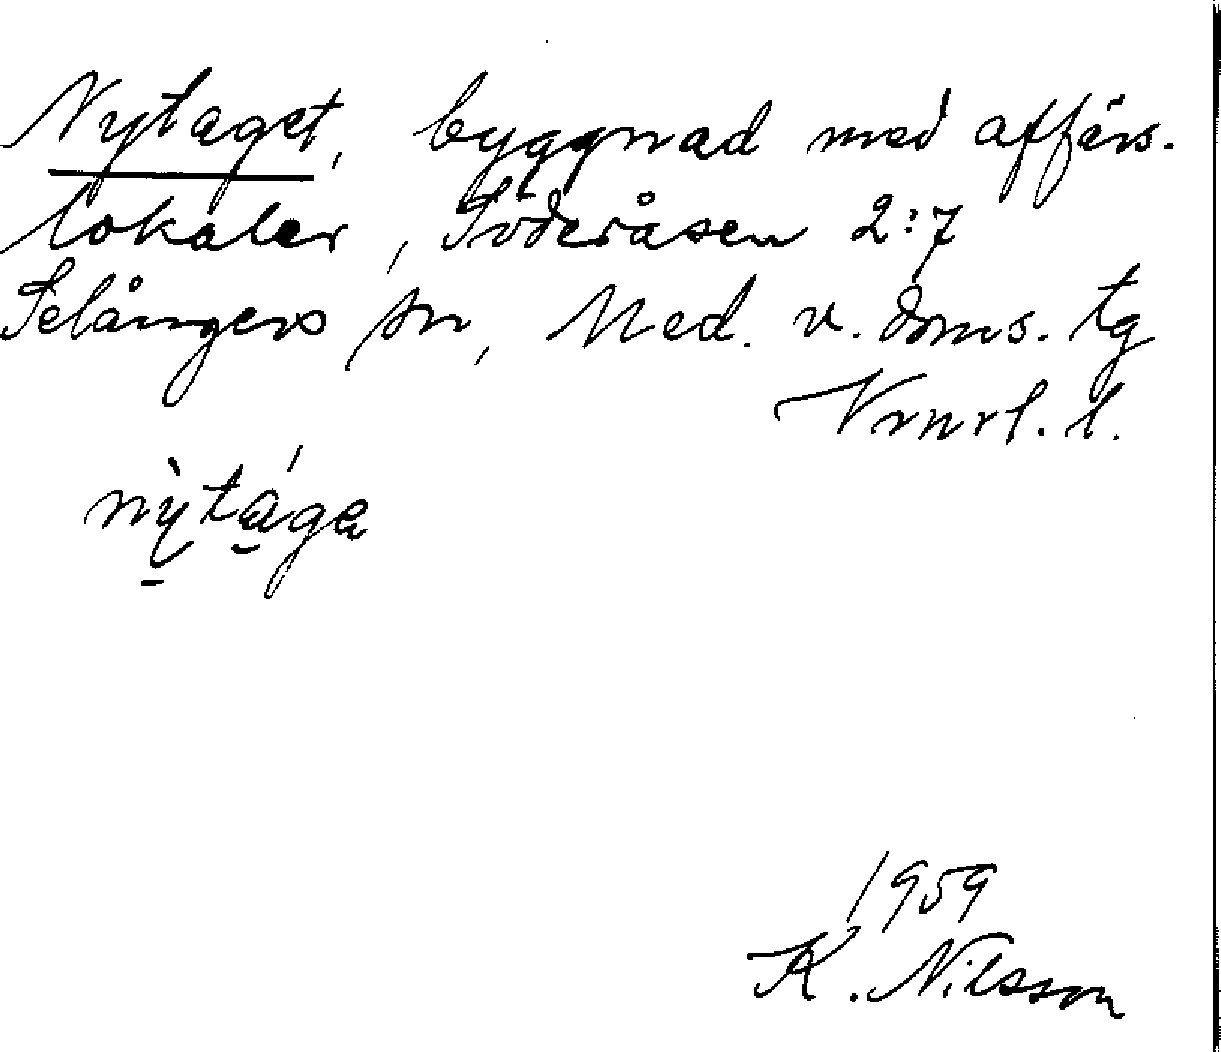 Nytaget, byggnad med affärs.
lokaler, Söderåsen 2:7
Selångers sn, Med. v. doms. tg
Vrnrl. l.
nỳtága
1959
K. Nilsson